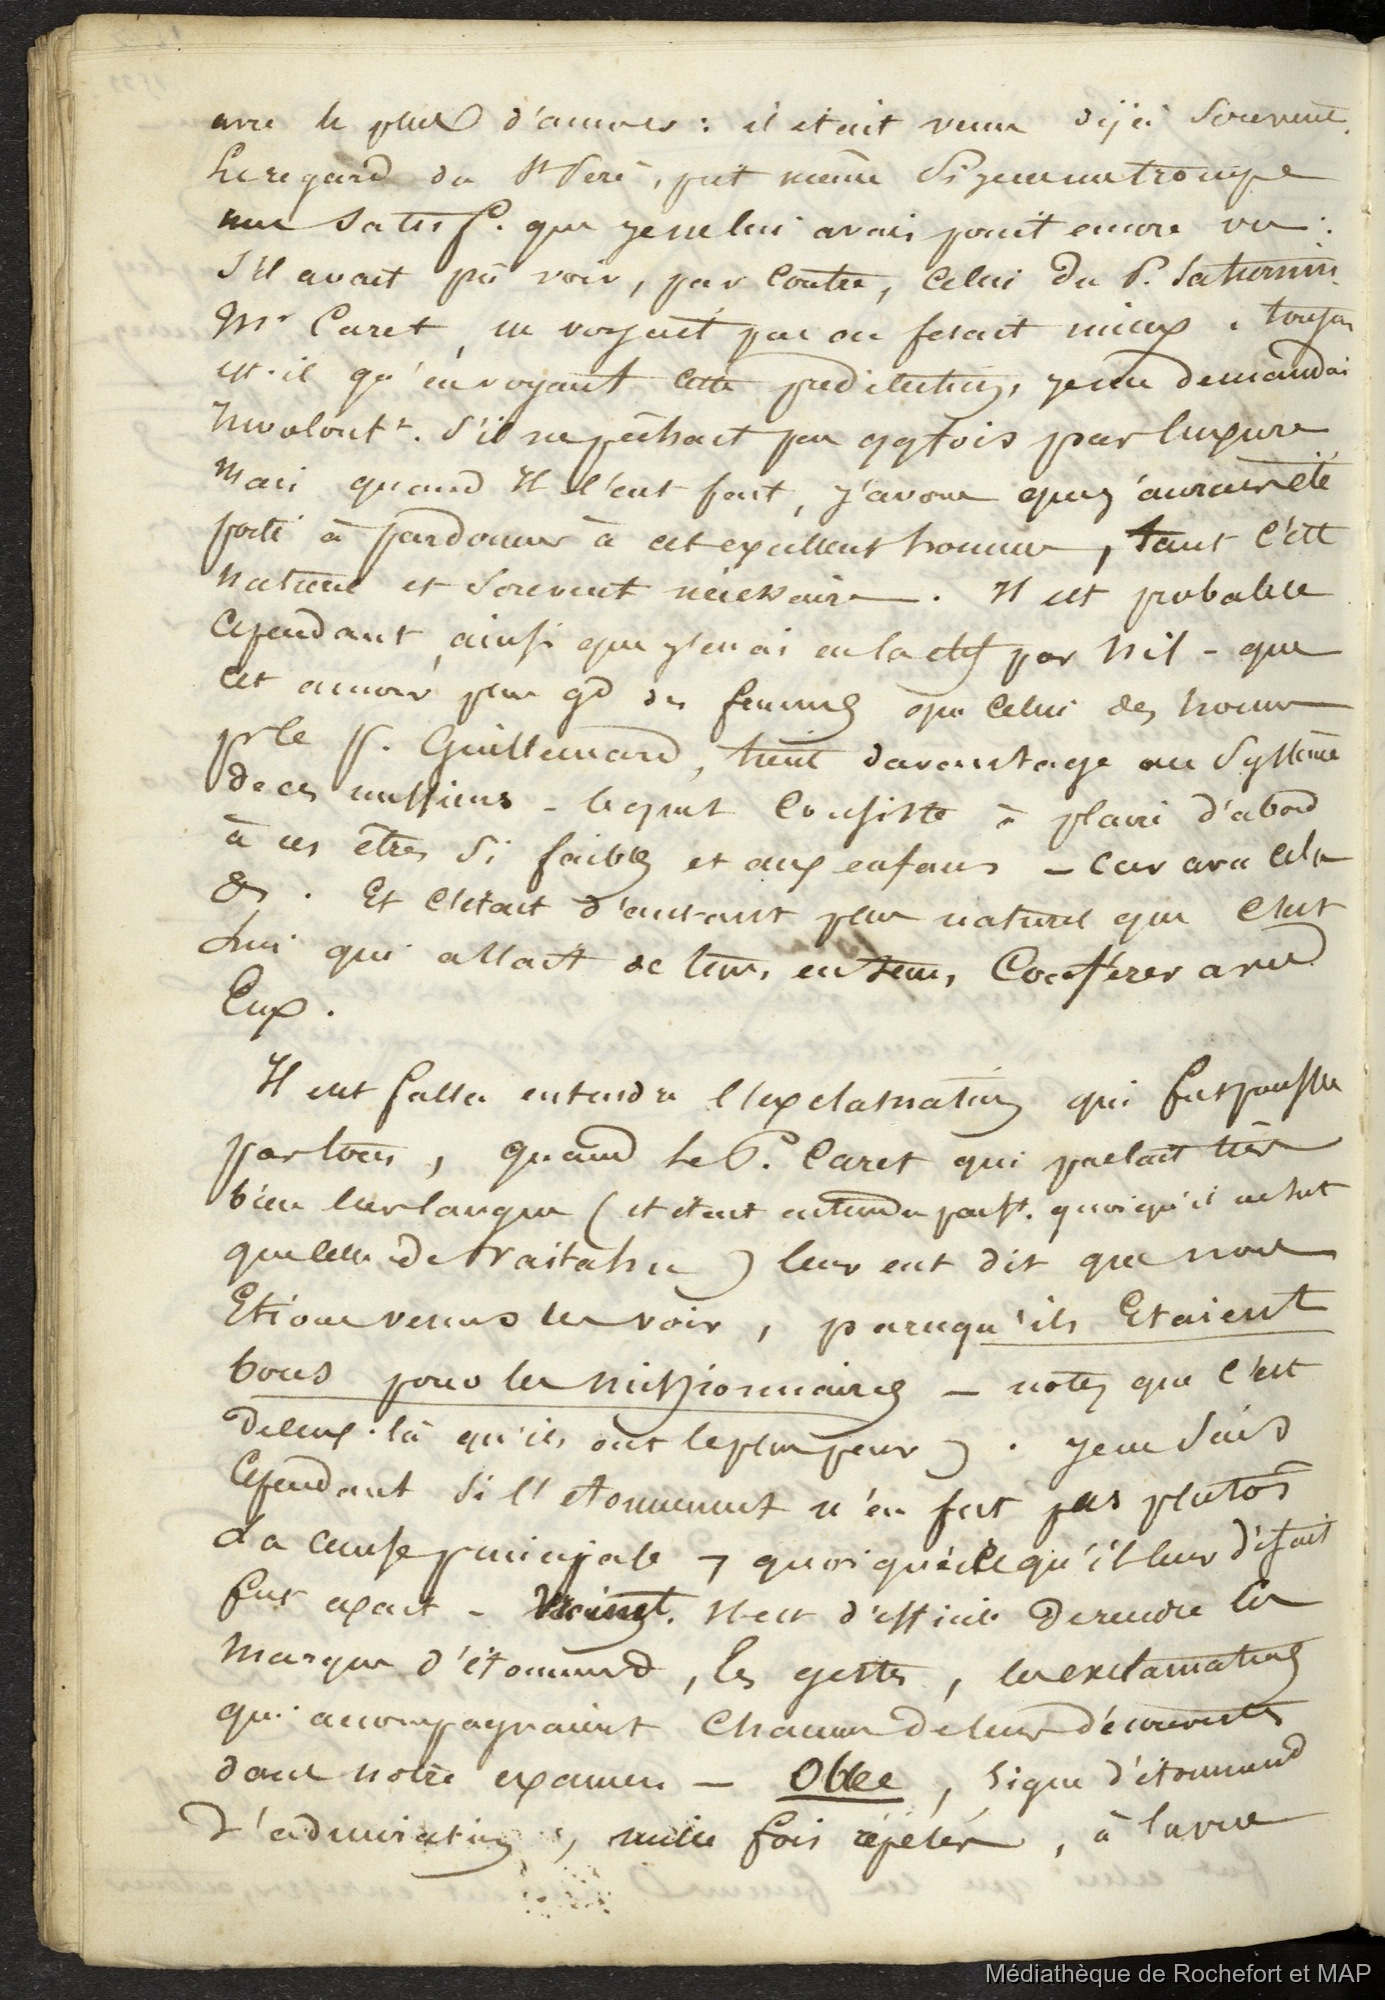 avec le plus d'amour : il était venu déjà souvent.
Le regard du St Père, prit même si je ne me trompe
une satisf. que je ne lui avais point encore vu :
s'il avait pu voir, par contre, celui du P. Saturnin.
Mr Caret, ne voyait pas ou fesait mieux. toujours
est-il qu'en voyant cette prédilection, je me demandai
involontt. s'il ne pêchait pas qqfois par luxure
Mais quand il l'eut fait, j'avoue que j'aurais été
porté à pardonner à cet excellent homme, tant c'est
naturel et souvent nécessaire. Il est probable
cependant, ainsi que j'en ai eu la clef par Nil - que
cet amour plus gd des femmes que celui des hommes
pr le P. Guillemard, tient davantage au système
de ces missions - lequel consiste à plaire d'abord
à ces êtres si faibles et aux enfans - car avec cela
&. Et c'était d'autant plus naturel que c'est
lui qui allait de tems en tems, conférer avec
Eux.
Il eut fallu entendre l'exclamation qui fut poussée
par tous, quand le P. Caret qui parlait très
bien leur langue (et était entendu parft. quoiqu'il ne sut
que celle de Vaitahu) leur eut dit que nous
Etions venus les voir, parcequ'ils Etaient
bons pour les missionnaires - notez que c'est
de ceux-là qu'ils ont le plus peur). je ne sais
cependant si l'étonnement n'en fut pas plutôt
la cause principale, quoique ce qu'il leur disait
fut exact - Il est difficile de rendre les
marques d'étonnemt, les gestes, les exclamations
qui accompagnaient chacune de leurs découvertes
dans notre examen - Obee, signe d'étonnemt
d'admiration, mille fois répétée, à la vue
Médiathèque de Rochefort et MAP